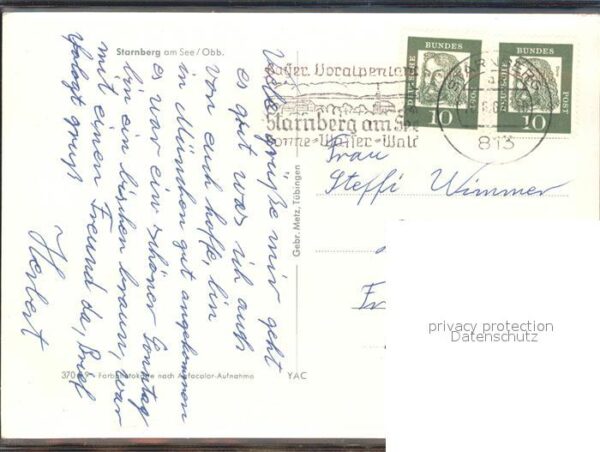 Starnberg am See/Obb.
Viele grüße mir geht
es gut was ich auch
von euch hoffe, bin
in München gut angekommen
es war ein schöner Sonntag
bin ein bischen braun, war
mit einen Freund da, Brief
folgt gruß
Herbert
370 Farbphotokarte nach Agfacolor-Aufnahme
YAC
Gebr. Metz, Tübingen
Bayer. Voralpenland
Starnberg am See
Sonne-Wasser-Wald
DEUTSCHE BUNDESPOST
10
DEUTSCHE BUNDESPOST
10
STARNBERG
813
Frau
Steffi Wimmer
Fr
privacy protection
Datenschutz